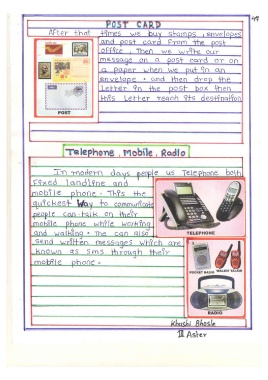 49
POST CARD
After that times we buy stamps, envelopes
and post card from the post
office. Then we write our
message on a post card or on
a paper when we put in an
envelope. and then drop the
letter in the post box then
this Letter reach its destination
POST
Telephone, Mobile, Radio
In modern days people us Telephone both
Fixed landline and
mobile phone. This the
quickest way to communicate
people can talk on their
mobile phone while working
and walking. The can also
send written messages which are
known as sms through their
mobile phone.
TELEPHONE
POCKET RADIO WALKIE TALKIE
RADIO
Khushi Bhosle
III Aster